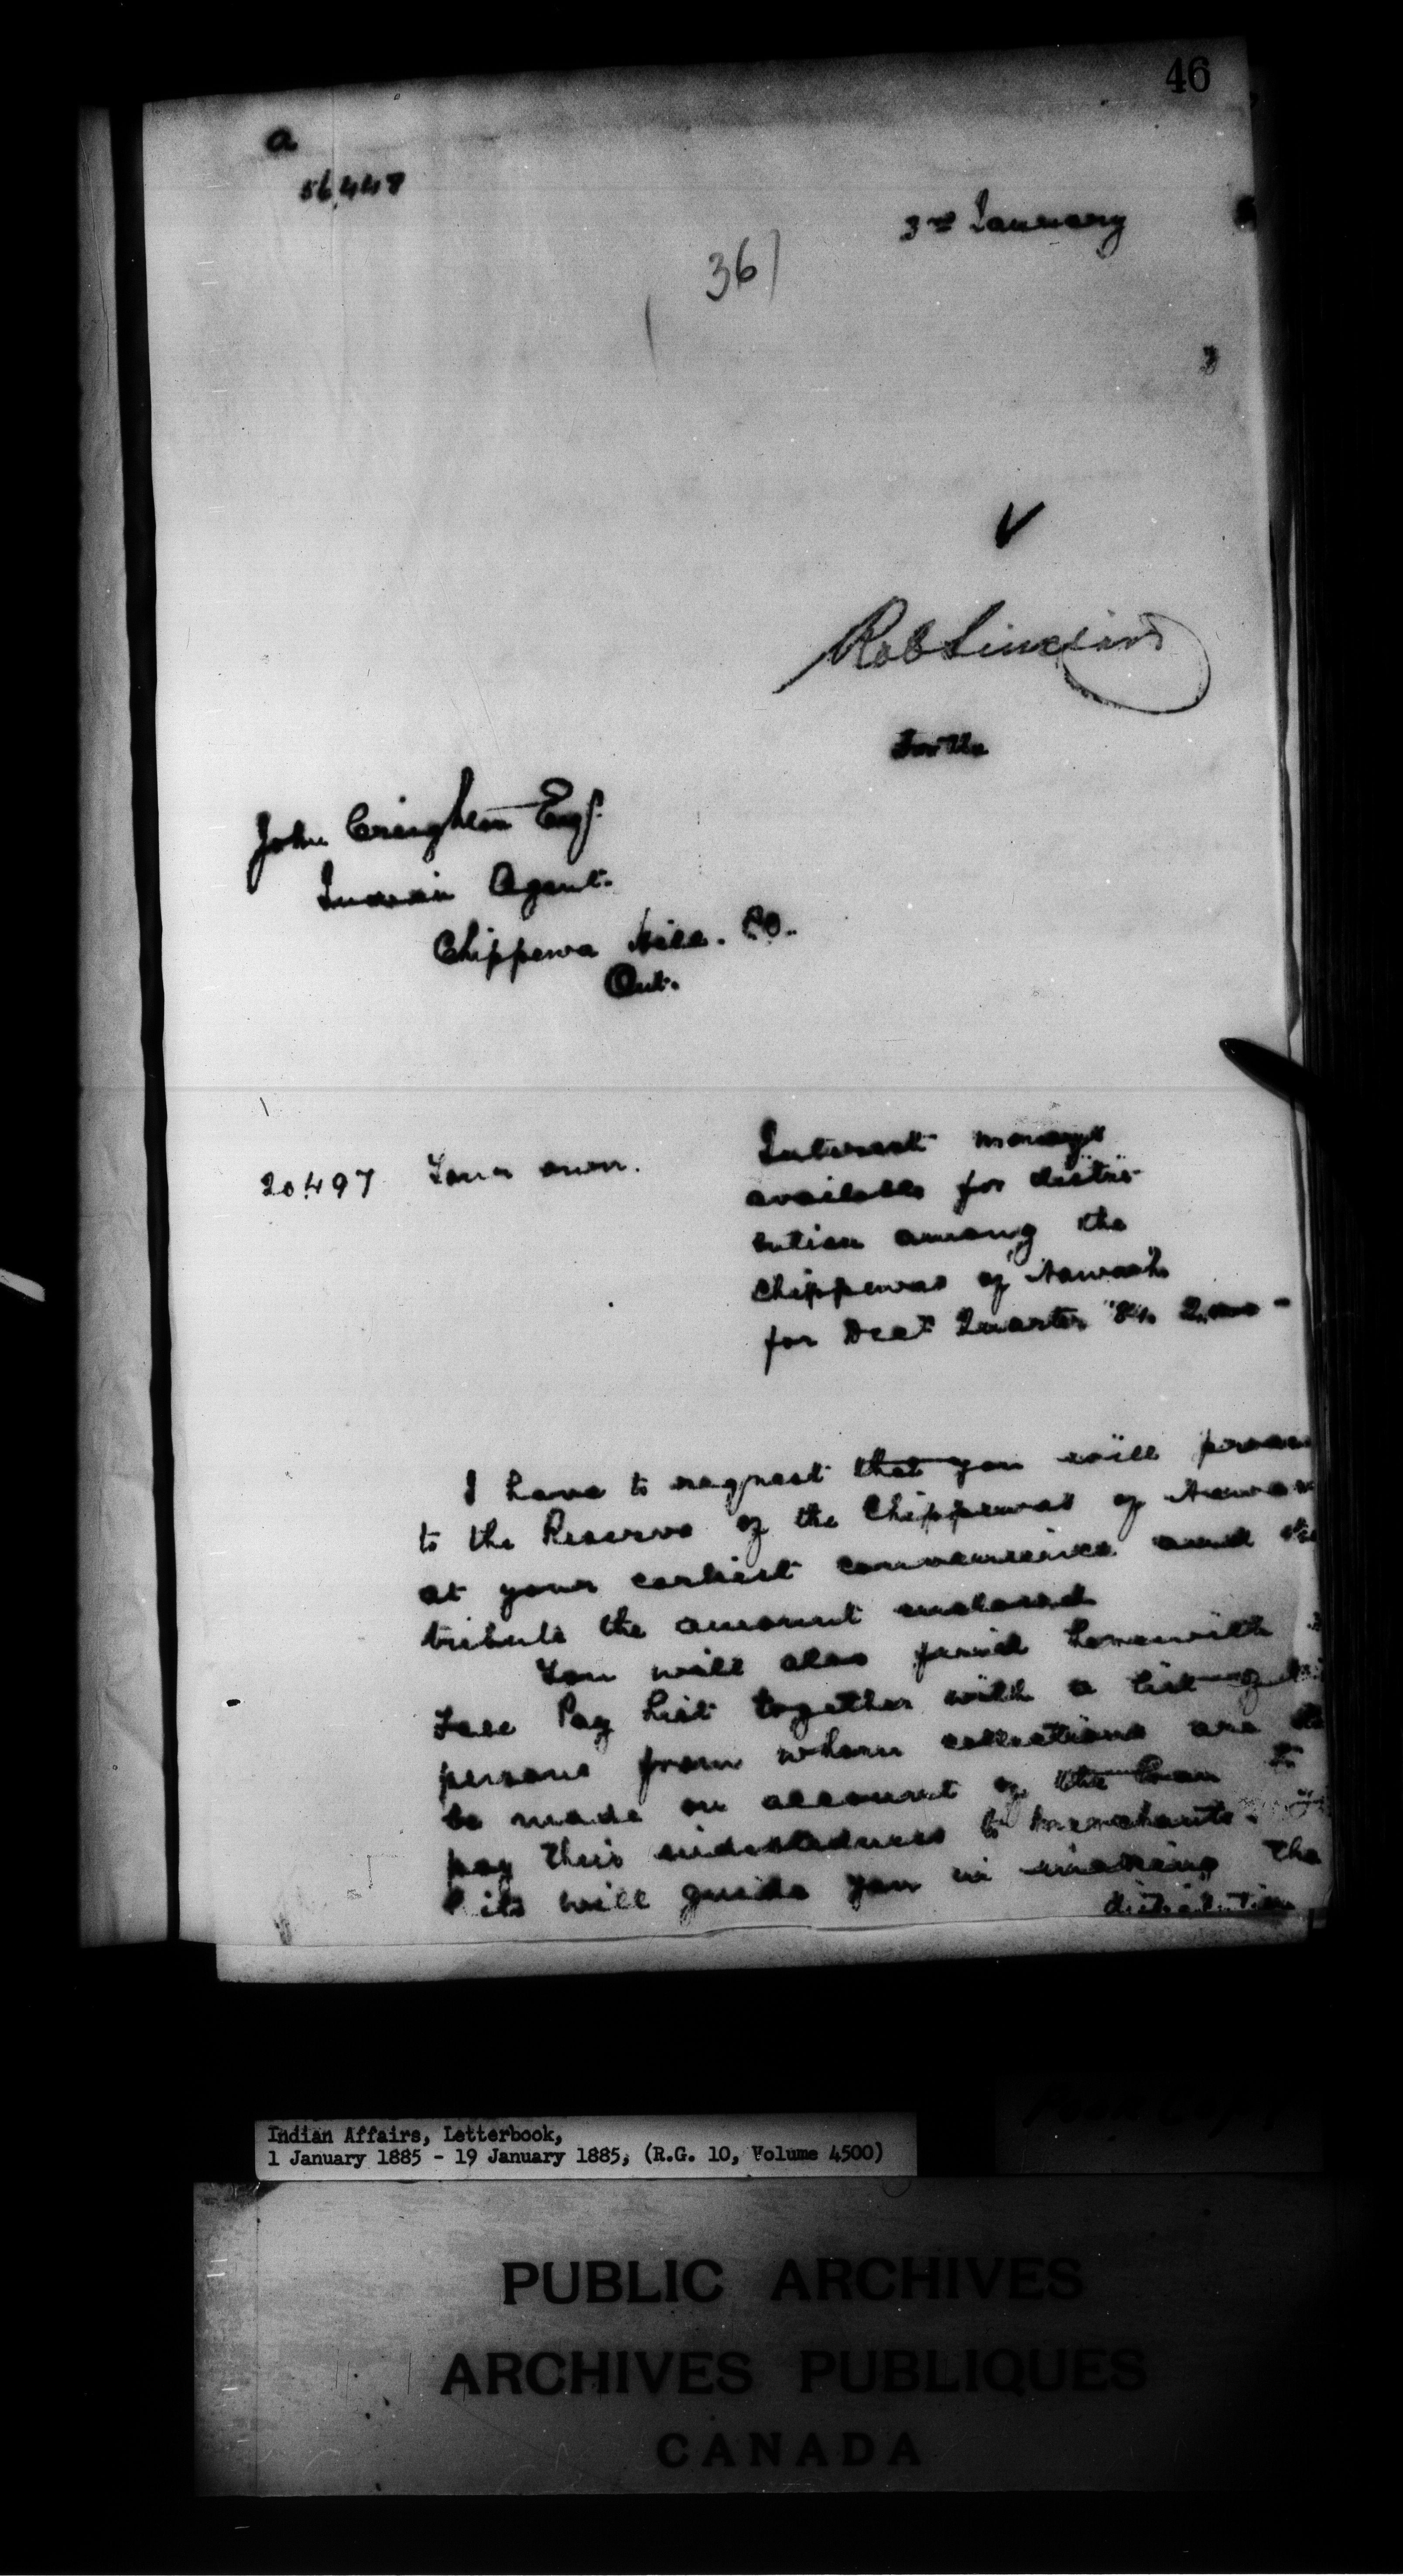 46
a
56,448
3rd January
36
Rob Sinclair
For the
John Creighton Esqr.
Indian Agent.
Chippewa Hill. P.O.
Ont.
20497 Your own.
Interest moneys
available for distri-
bution among the
Chippewas of Nawash
for Decr Quarter '84
I have to request that you will
to the Reserve of the Chippewas of
at your earliest convenience and
tribute the amount enclosed
You will also find herewith
Pay List together with a list of
persons from whom collections are
be made on account of the loan to
pay their indebtedness to merchants.
will guide you in making the
distribution
Indian Affairs, Letterbook,
1 January 1885 - 19 January 1885, (R.G. 10, Volume 4500)
PUBLIC ARCHIVES
ARCHIVES PUBLIQUES
CANADA